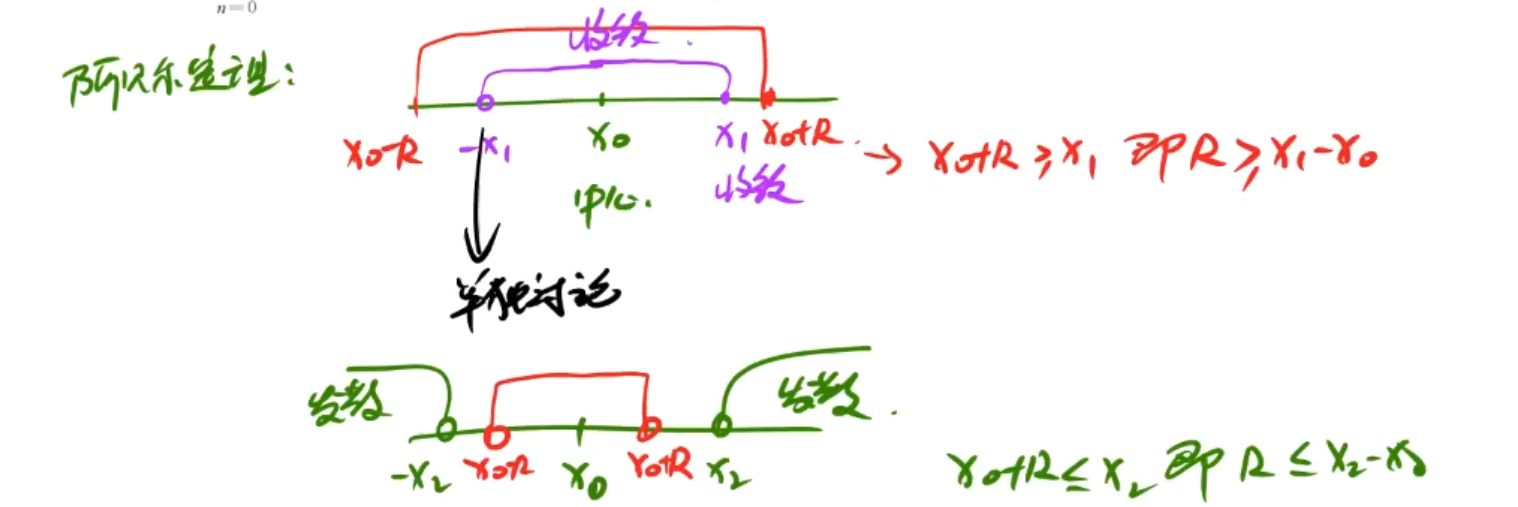 n=0
收敛
阿贝尔定理:
x₀-R -x₁ x₀ x₁ x₀+R → x₀+R ≥ x₁ 即 R ≥ x₁-x₀
中心. 收敛
单独讨论
发散 发散.
-x₂ x₀-R x₀ x₀+R x₂ x₀+R ≤ x₂ 即 R ≤ x₂-x₀